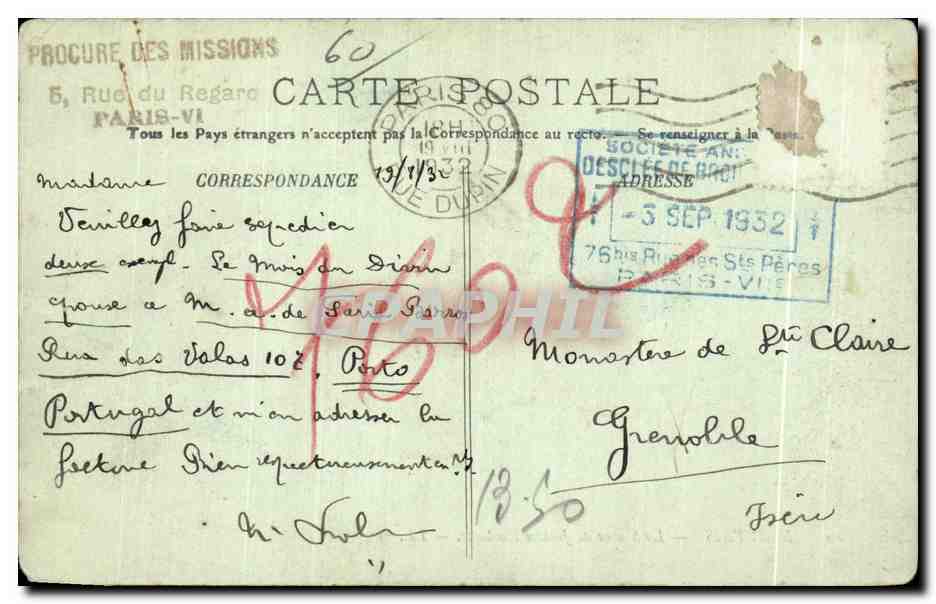 PROCURE DES MISSIONS
5, Rue du Regard
PARIS-VI
60
CARTE POSTALE
Tous les Pays étrangers n'acceptent pas la Correspondance au recto. Se renseigner à la Poste.
CORRESPONDANCE
ADRESSE
PARIS 108
18H
19 VIII
1932
RUE DUPIN
SOCIÉTÉ AN:
DESCLÉE DE BROU
-3 SEP 1932
76bis Rue des Sts Pères
PARIS-VIIe
19/1/32
Madame
Veuillez faire expédier
deux exempl. Le Mois du Divin
Epouse à M. a. de Faria Barros
Rua das Valas 102, Porto
Portugal et m'en adresser la
facture Bien respectueusement en
7602
Monastère de Ste Claire
Grenoble
Isère
13.50
CPAPHIL